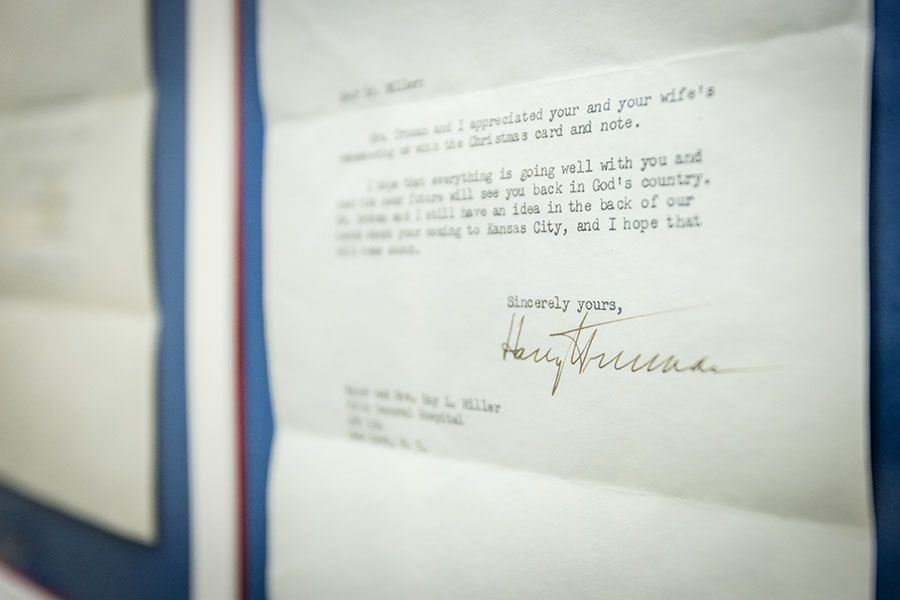 Dear Dr. Miller:
Mrs. Truman and I appreciated your and your wife's
remembering us with the Christmas card and note.
I hope that everything is going well with you and
that the near future will see you back in God's country.
and I still have an idea in the back of our
about your coming to Kansas City, and I hope that
will come about.
Sincerely yours,
Harry Truman
and Mrs. Roy L. Miller
General Hospital